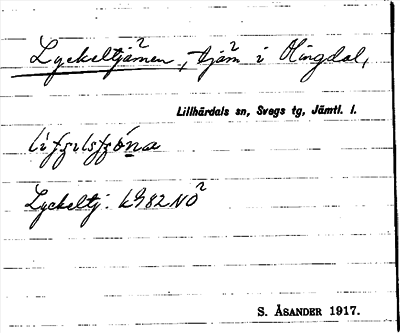 Lyckeltjärnen, tjärn i Olingdal,
Lillhärdals sn, Svegs tg, Jämtl. l.
Lyckeltj. k982NO
S. ÅSANDER 1917.